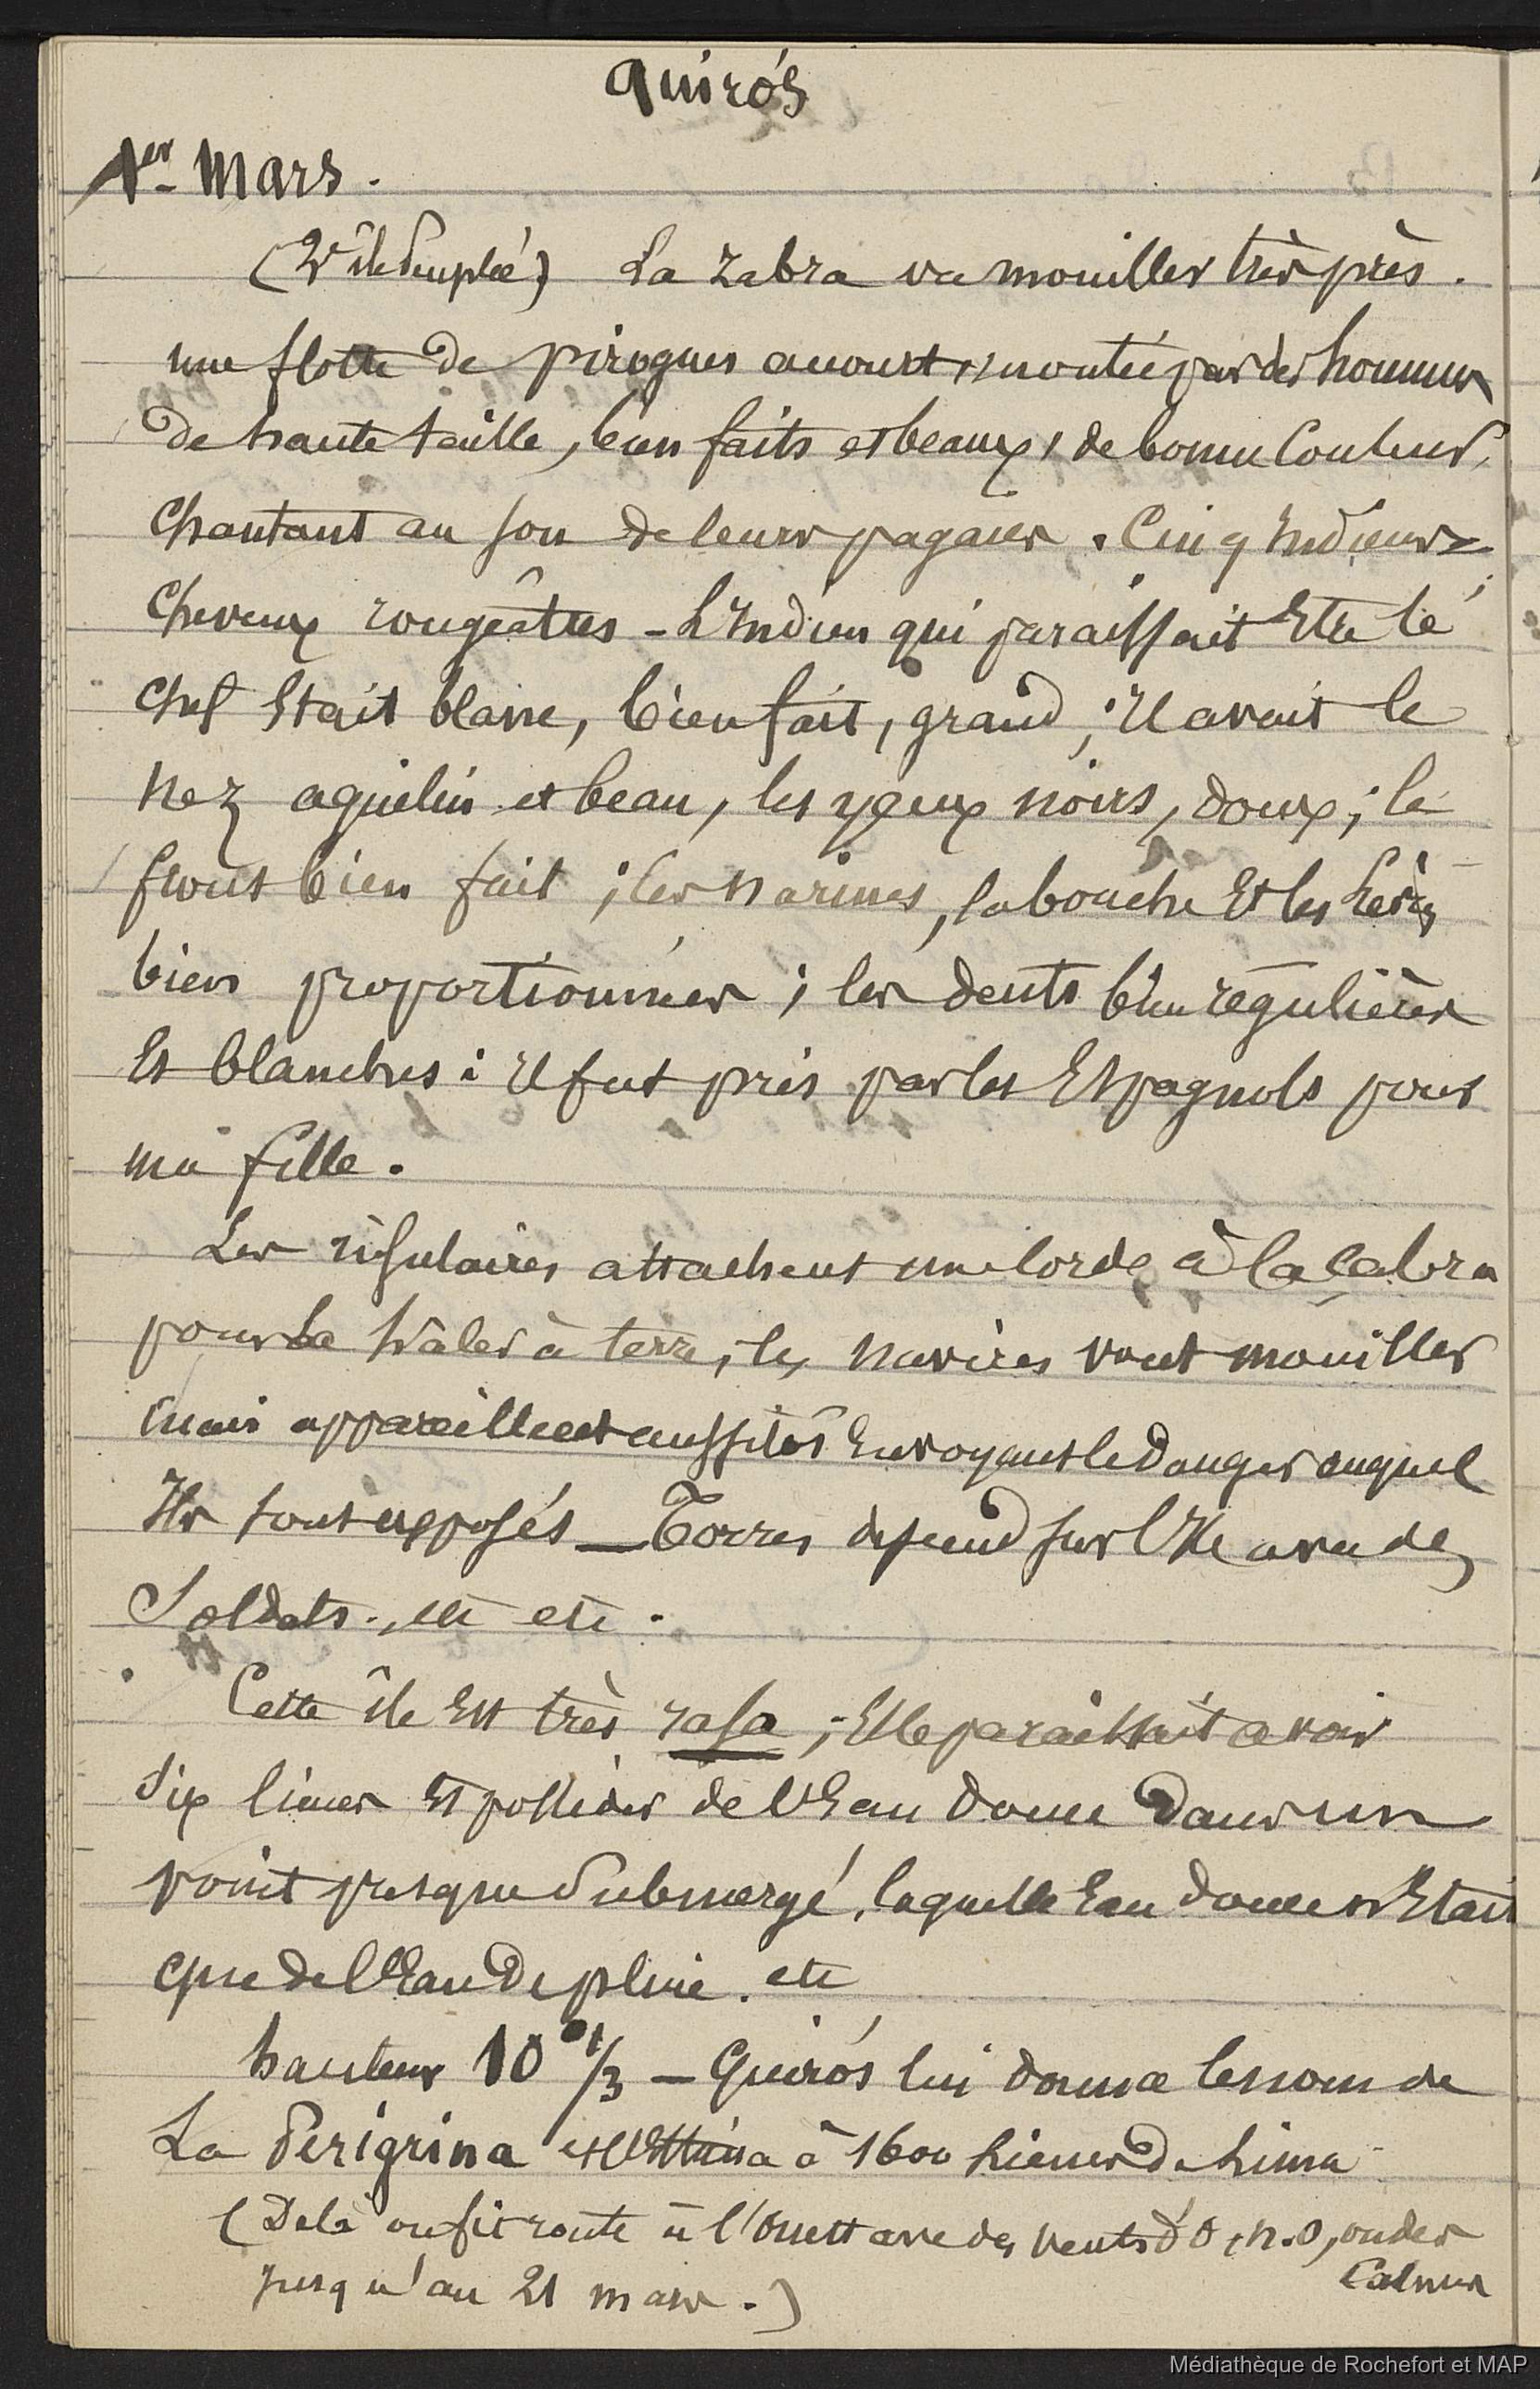 Quirós
1er Mars.
(2e île peuplée) La zabra va mouiller très près.
une flotte de pirogues accourt, montée par des hommes
de haute taille, bien faits et beaux, de bonne couleur,
chantant au son de leurs pagaies. Cinq Indiens
cheveux rougeâtres - L'Indien qui paraissait Etre le
chef Etait blanc, bien fait, grand; il avait le
nez aquilin et beau, les yeux noirs, doux; le
front bien fait; les narines, la bouche Et les lèvres
bien proportionnées; les dents bien régulières
Et blanches: il fut pris par les Espagnols pour
une fille.
Les insulaires attachent une corde à la zabra
pour la hâler à terre, les navires vont mouiller
mais appareillent aussitôt En voyant le danger auquel
Ils sont exposés — Torres descend sur l'Ile avec des
Soldats., etc etc.
Cette île Est très rasa; Elle paraissait avoir
dix lieues Et posséder de l'Eau douce dans un
point presque submergé, laquelle Eau douce n'Etait
que de l'Eau de pluie. etc
hauteur 10° 1/3 — Quirós lui donne le nom de
La Perigrina à 1600 Lieues de Lima
(De là on fit route à l'Ouest avec des vents d'O, N.O, ou des
calmes
jusqu'au 21 mars.)
Médiathèque de Rochefort et MAP